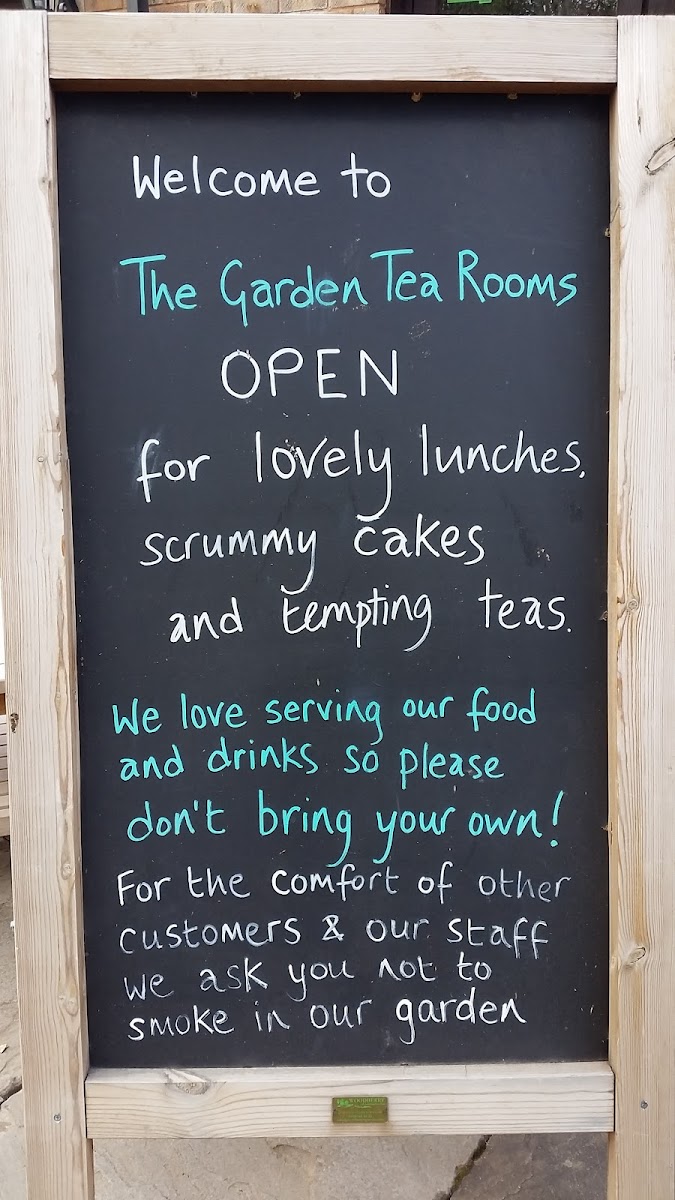 Welcome to
The Garden Tea Rooms
OPEN
for lovely lunches,
scrummy cakes
and tempting teas.
We love serving our food
and drinks so please
don't bring your own!
For the comfort of other
customers & our staff
we ask you not to
smoke in our garden